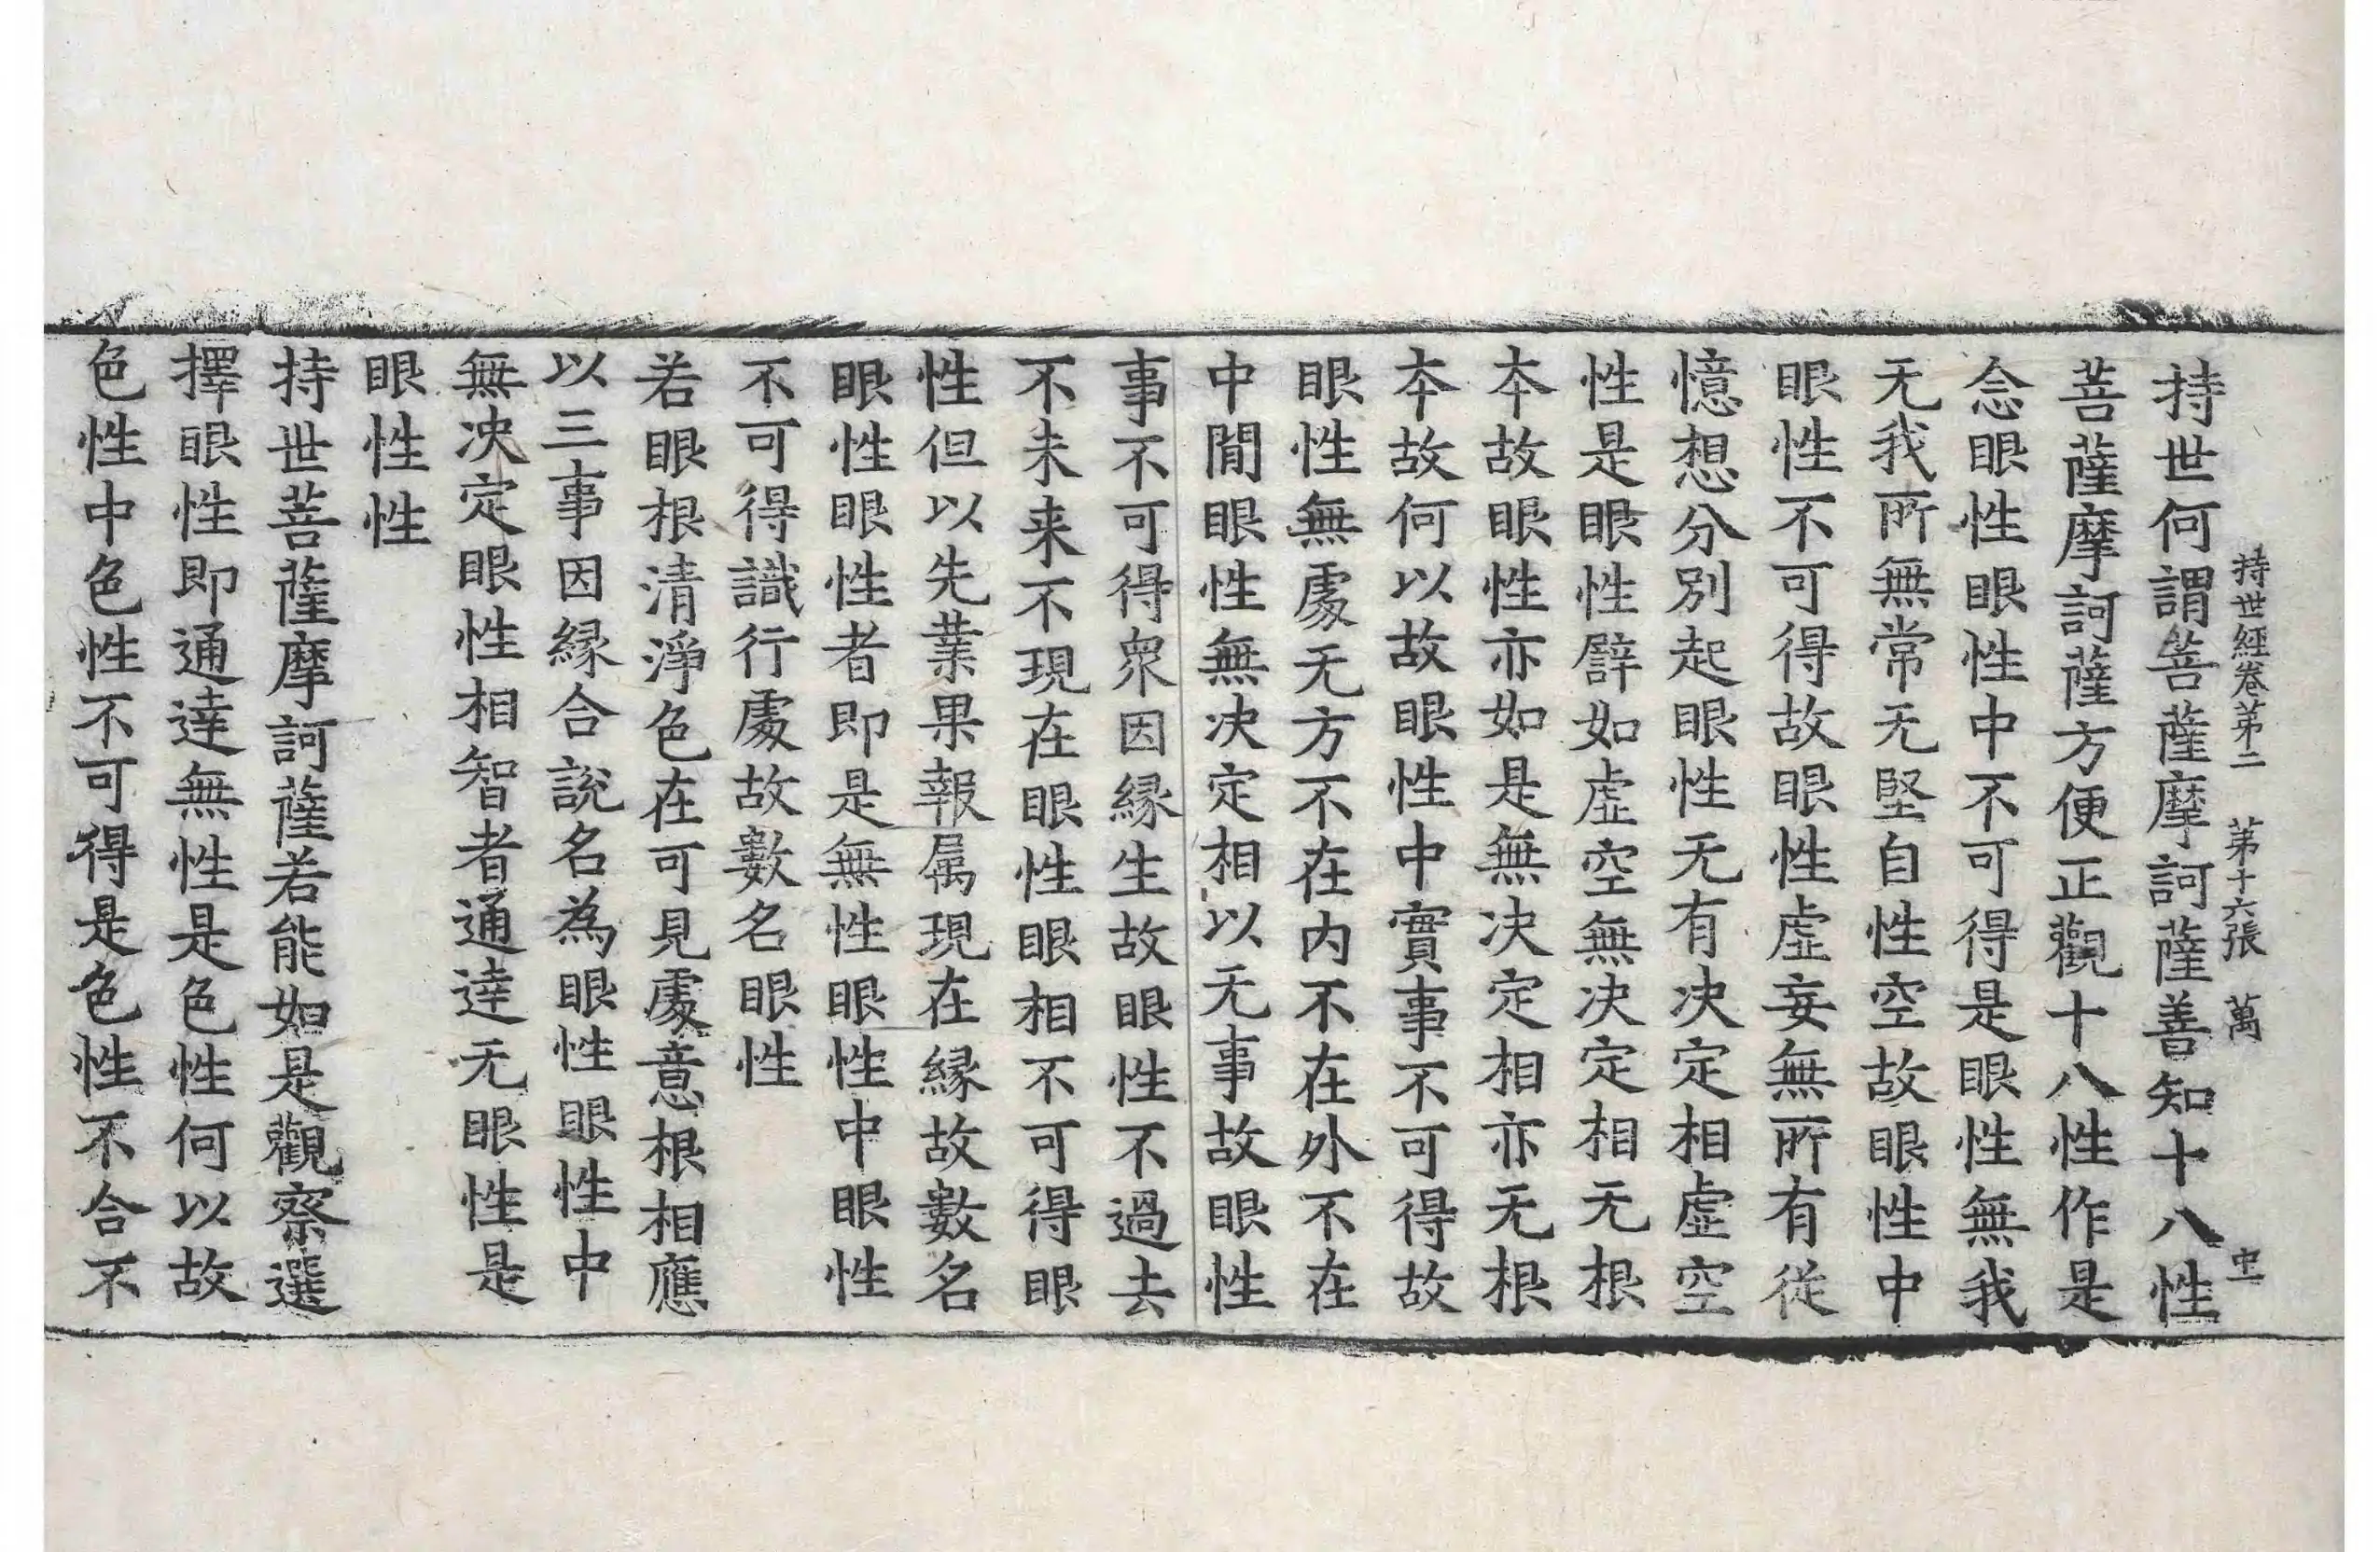 持世經卷第二 第十六張 萬
持世何謂菩薩摩訶薩善知十八性
菩薩摩訶薩方便正觀十八性作是
念眼性眼性中不可得是眼性無我
无我所無常无堅自性空故眼性中
眼性不可得故眼性虛妄無所有從
憶想分別起眼性无有決定相虛空
性是眼性辟如虛空無決定相无根
本故眼性亦如是無決定相亦无根
本故何以故眼性中實事不可得故
眼性無處无方不在內不在外不在
中閒眼性無決定相以无事故眼性
事不可得衆因縁生故眼性不過去
不未来不現在眼性眼相不可得眼
性但以先業果報属現在縁故數名
眼性眼性者即是無性眼性中眼性
不可得識行處故數名眼性
若眼根清淨色在可見處意根相應
以三事因縁合說名為眼性眼性中
無決定眼性相智者通達无眼性是
眼性性
持世菩薩摩訶薩若能如是觀察選
擇眼性即通達無性是色性何以故
色性中色性不可得是色性不合不